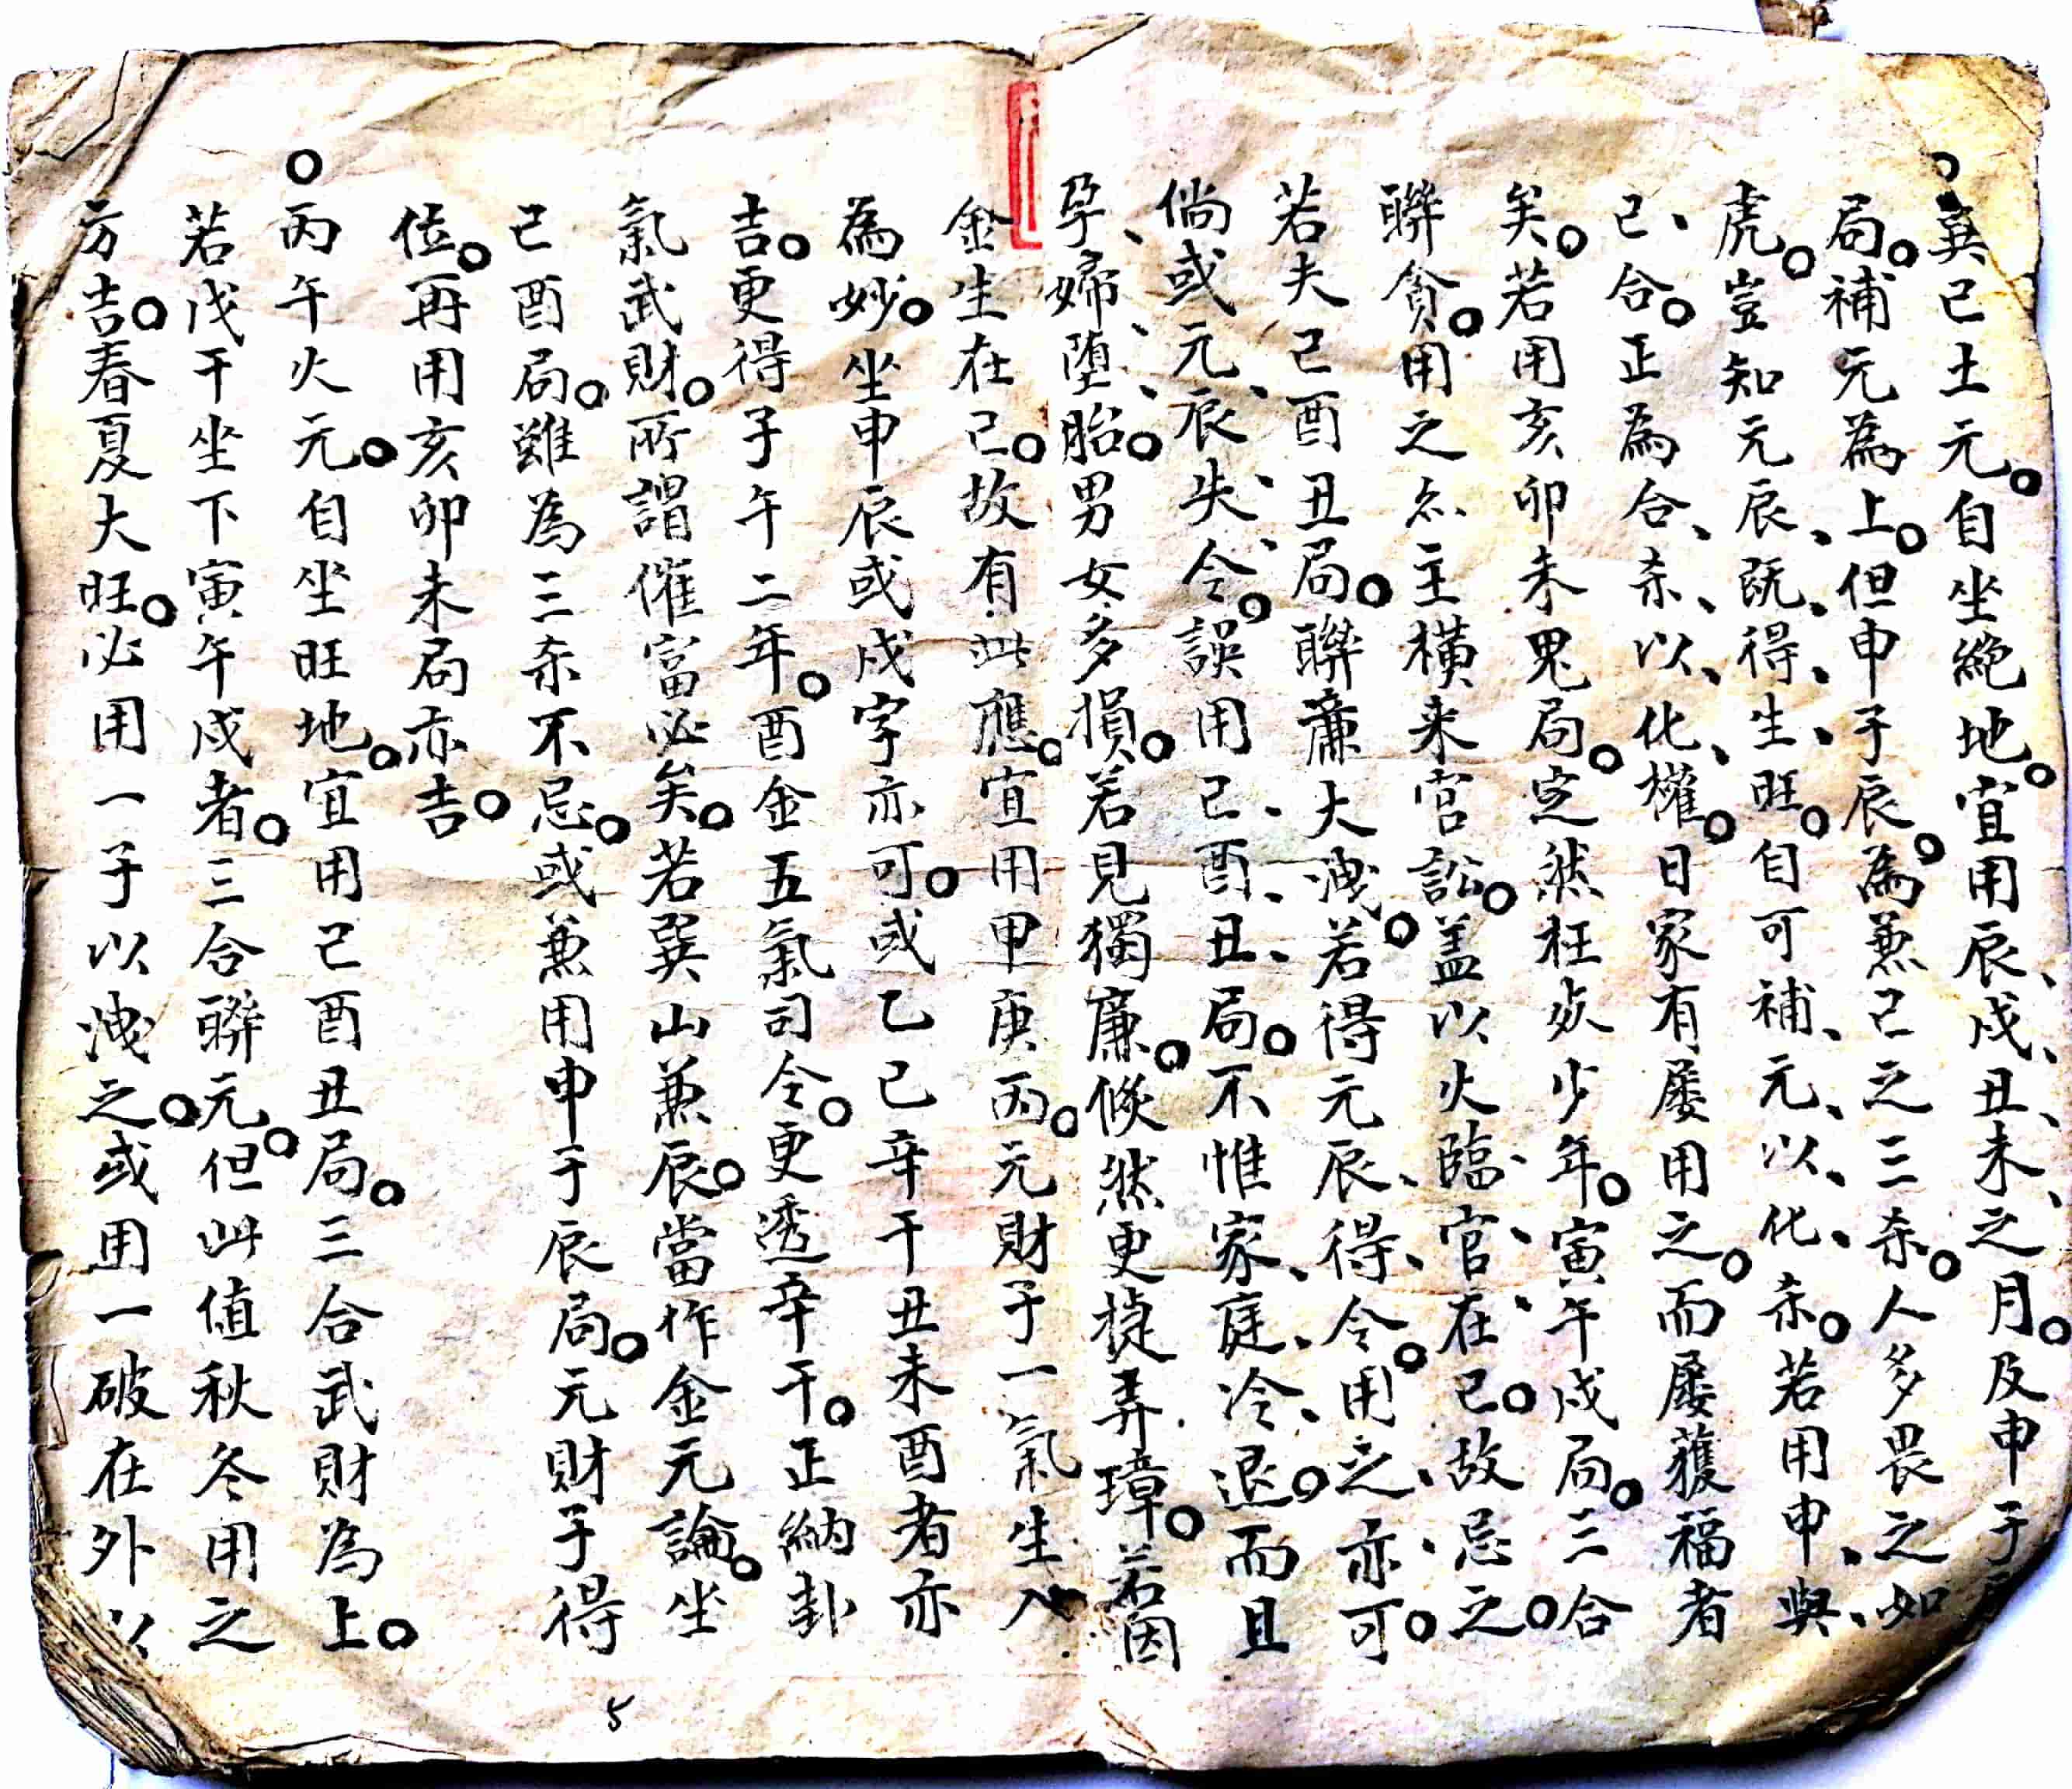 巽巳土元。自坐絶地。宜用辰、戍、丑、未、之月。及申子
局。補元為上。但申子辰。為兼巳之三杀。人多畏之如
虎。豈知元辰、既、得、生、旺。自可補、元、以、化、杀。若用申、與、
巳、合。正為合、杀、以、化、權。日家有屡用之。而屡獲福者
矣。若用亥卯未鬼局。定然枉殀少年。寅午戍局。三合
聨貪。用之亦主横来官訟。盖以火臨、官、在、巳。故忌之。
若夫巳酉丑局。聨廉大洩。若得元辰、得、令。用之、亦、可。
倘或元、辰、失、令。誤用巳、酉、丑、局。不惟家、庭、冷、退。而且
孕、婦、堕、胎。男女多損。若見獨廉。倐然更捷弄璋。若因
金生在巳。故有此應。宜用甲庚丙。元財子一氣生入
為妙。坐申辰或戍字亦可。或乙巳辛干丑未酉者亦
吉。更得子午二年。酉金五氣司令。更透辛干。正納卦
氣武財。所謂催富必矣。若巽山兼辰。當作金元論。坐
巳酉局。雖為三杀不忌。或兼用申子辰局。元財子得
位。再用亥卯未局亦吉。
丙午火元。自坐旺地。宜用巳酉丑局。三合武財為上。
若戊干坐下寅午戍者。三合聨元。但此值秋冬用之
方吉。春夏大旺。必用一子以洩之。或用一破在外以
5